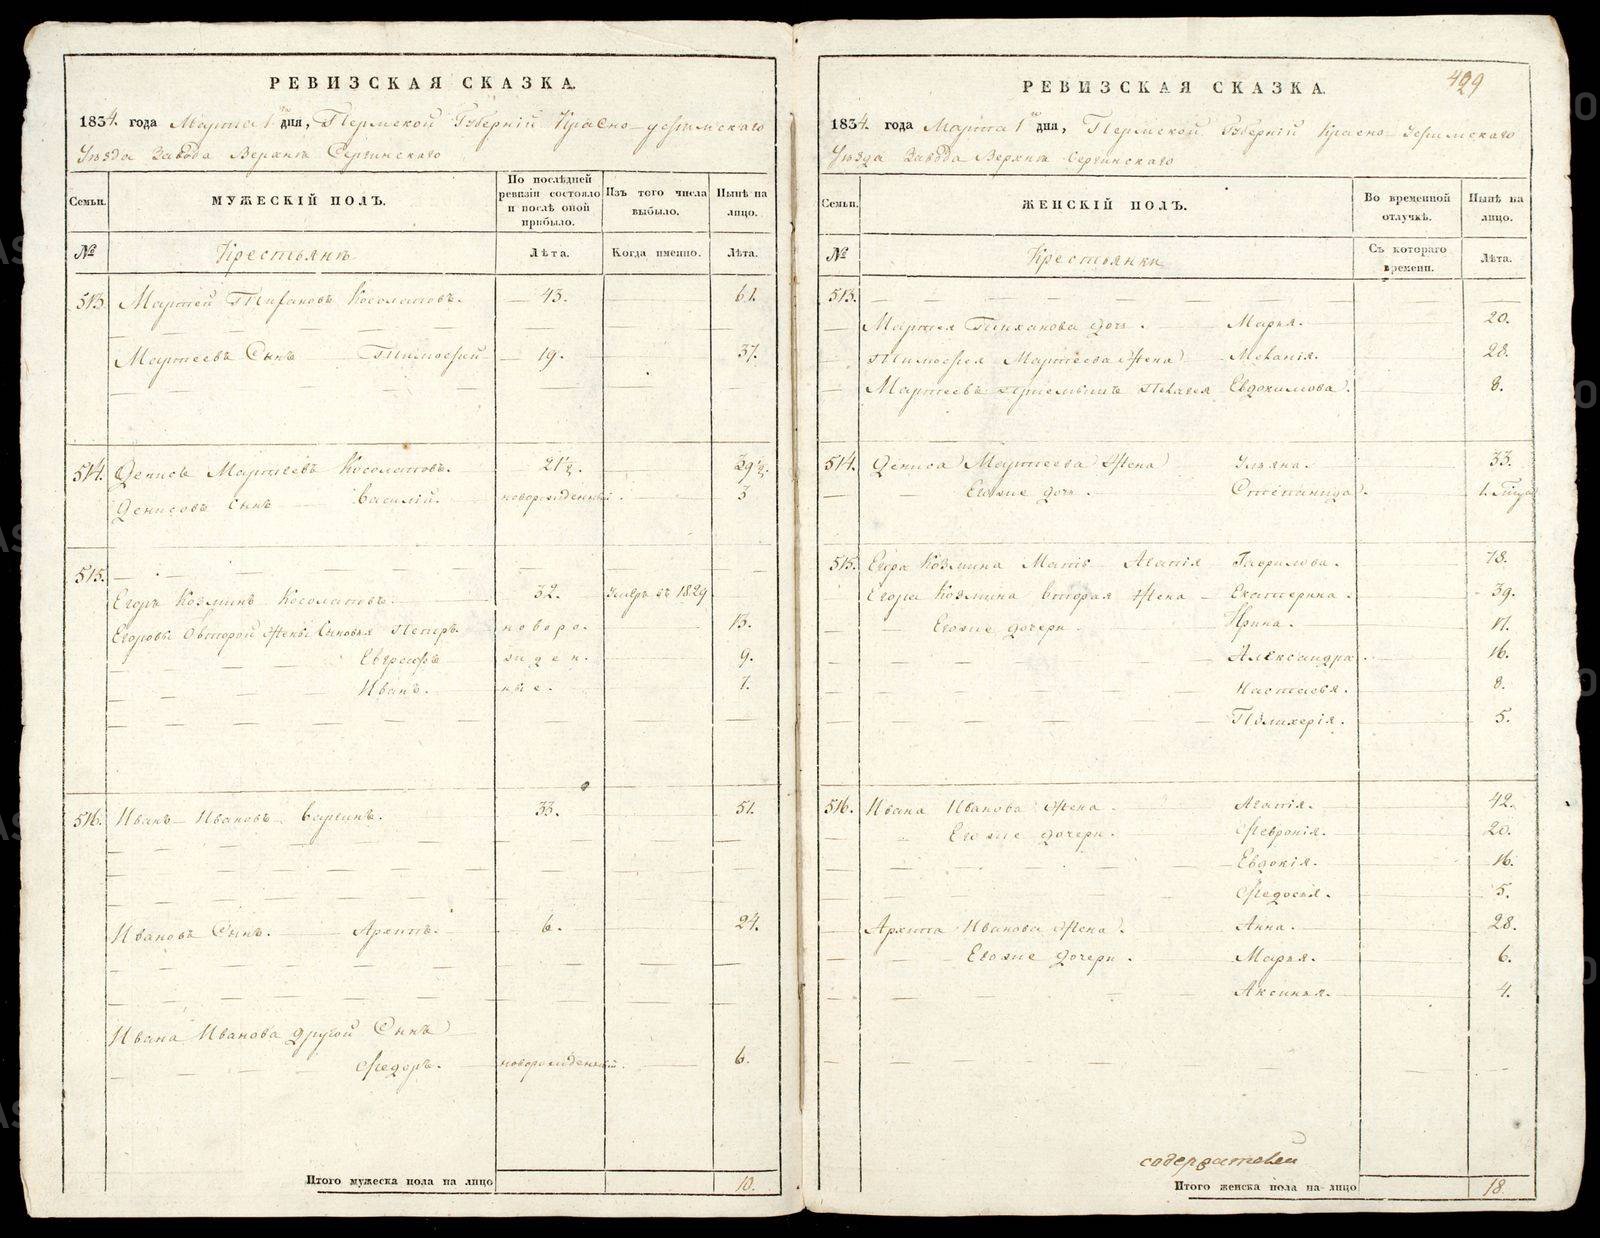 РЕВИЗСКАЯ СКАЗКА.
1834. года Марта 1го дня, Пермской Губернiй Красно-уфимскаго
Уезда Завода Верхнъ Сергинскаго
Семьи.
МУЖЕСКІЙ ПОЛЪ.
По послѣдней ревизіи состояло и послѣ оной прибыло.
Изъ того числа выбыло.
Нынѣ на лицо.
№
Крестьянъ
Лѣта.
Когда именно.
Лѣта.
513. Мартей Тифановъ Косолаповъ. 43. 61.
Мартеевъ Сынъ Тимофей 19. 37.
514. Денисъ Мартеевъ Косолаповъ. 21½. 39½.
Денисовъ сынъ Василiй. новорожденный. 3
515.
Егоръ Козминъ Косолаповъ. 32. Умеръ въ 1829
Егоровы Овторой жены Сыновья Петръ. новоро- 13.
Евграфъ жден- 9.
Иванъ. ные. 7.
516. Иванъ Ивановъ 33. 51.
Ивановъ Сынъ. Архипъ. 6. 24.
Ивана Иванова другой Сынъ
Федоръ. новорожденный. 6.
Итого мужеска пола на лицо 10.
499
РЕВИЗСКАЯ СКАЗКА.
1834. года Марта 1го дня, Пермской Губернiй Красно-Уфимскаго
Уезда Завода Верхнъ Сергинскаго
Семьи.
ЖЕНСКІЙ ПОЛЪ.
Во временной отлучкѣ.
Нынѣ на лицо.
№
Крестьянки
Съ котораго времени.
Лѣта.
513.
Мартея дочь. Марья. 20.
Тимофея Мартеева Жена Меланiя. 28.
Мартеевъ Прiемышъ Пелагея Евдокимова. 8.
514. Дениса Мартеева Жена Ульяна. 33.
Егоже дочь. Степанида. 1.
515. Егора Козмина Мать Агапiя Гаврилова. 78.
Егора Козмина вторая Жена Екатерина. 39.
Егоже дочери Ирина. 17.
Александра. 16.
Настасья. 8.
Полихерiя. 5.
516. Ивана Иванова Жена Агапiя. 42.
Егоже дочери. Февронiя. 20.
Евдокiя. 16.
Федосья. 5.
Архипа Иванова Жена. Анна. 28.
Егоже дочери. Марья. 6.
Аксинья. 4.
Итого женска пола на лицо 18